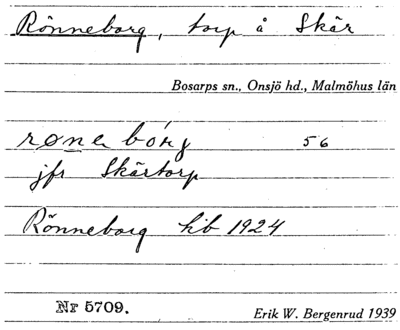 Rönneborg, torp å Skär
Bosarps sn., Onsjö hd., Malmöhus län
rønebórg 56
jfr Skärtorp
Rönneborg hib 1924
Nr 5709.
Erik W. Bergenrud 1939